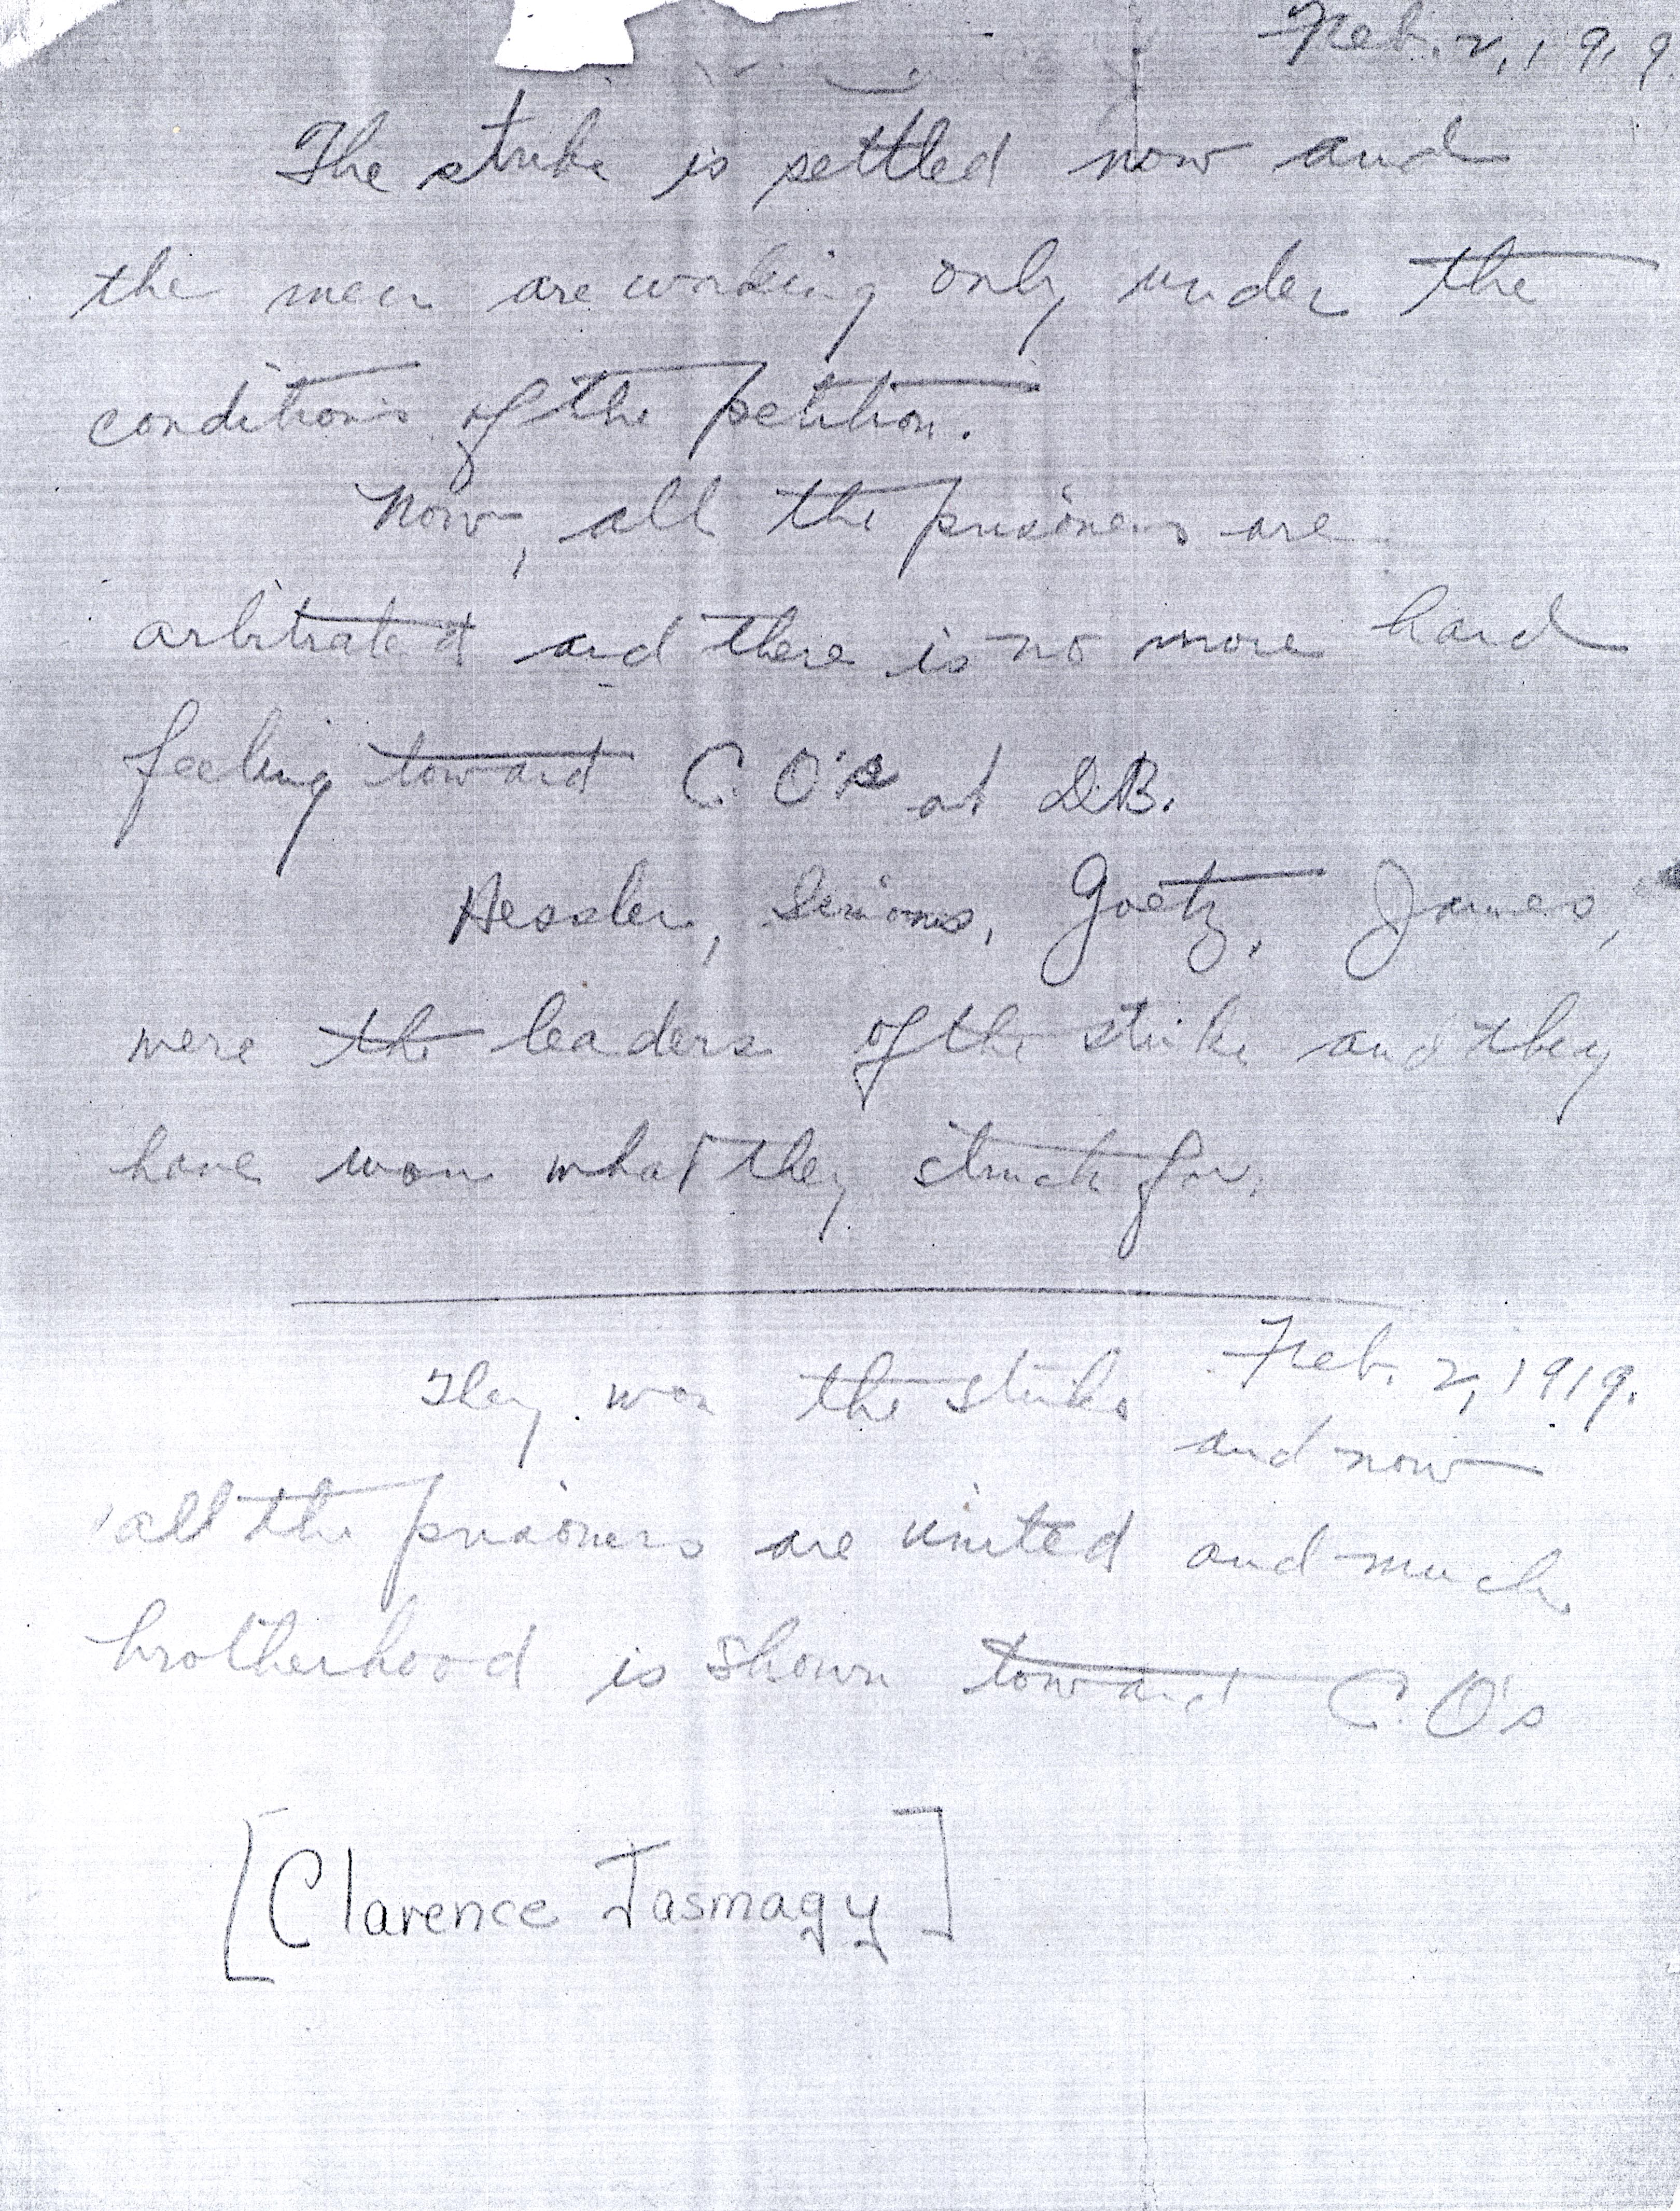 Feb. 2, 1919
The strike is settled now and
the men are working only under the
conditions of the petition.
Now, all the prisoners are
arbitrated and there is no more hard
feeling toward C.O's at D.B.
Hessler, Simons, Goetz, James,
were the leaders of the strike and they
have won what they struck for.
Feb. 2, 1919.
They won the strike
and now
all the prisoners are united and much
brotherhood is shown toward C.O's
[Clarence Jasmagy]